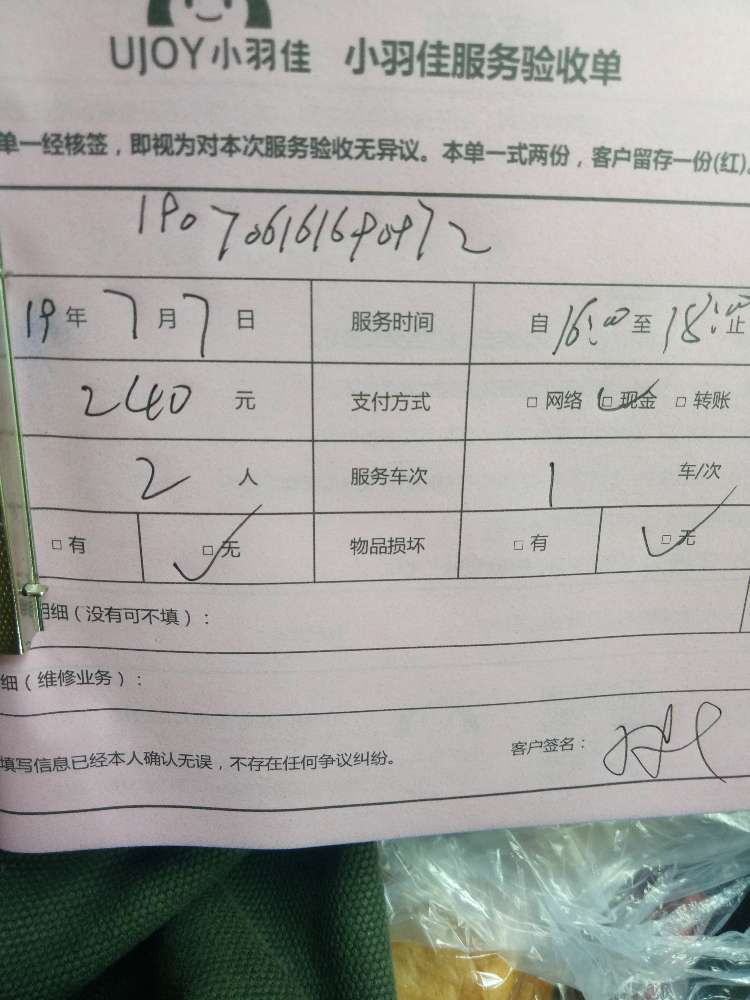 UJOY小羽佳 小羽佳服务验收单
单一经核签，即视为对本次服务验收无异议。本单一式两份，客户留存一份(红)。
19年7月7日 服务时间 自16:00至18:00止
240元 支付方式 □ 网络 □ 现金 □ 转账
2人 服务车次 1车/次
□ 有 □ 无 物品损坏 □ 有 □ 无
明细（没有可不填）：
细（维修业务）：
填写信息已经本人确认无误，不存在任何争议纠纷。 客户签名：